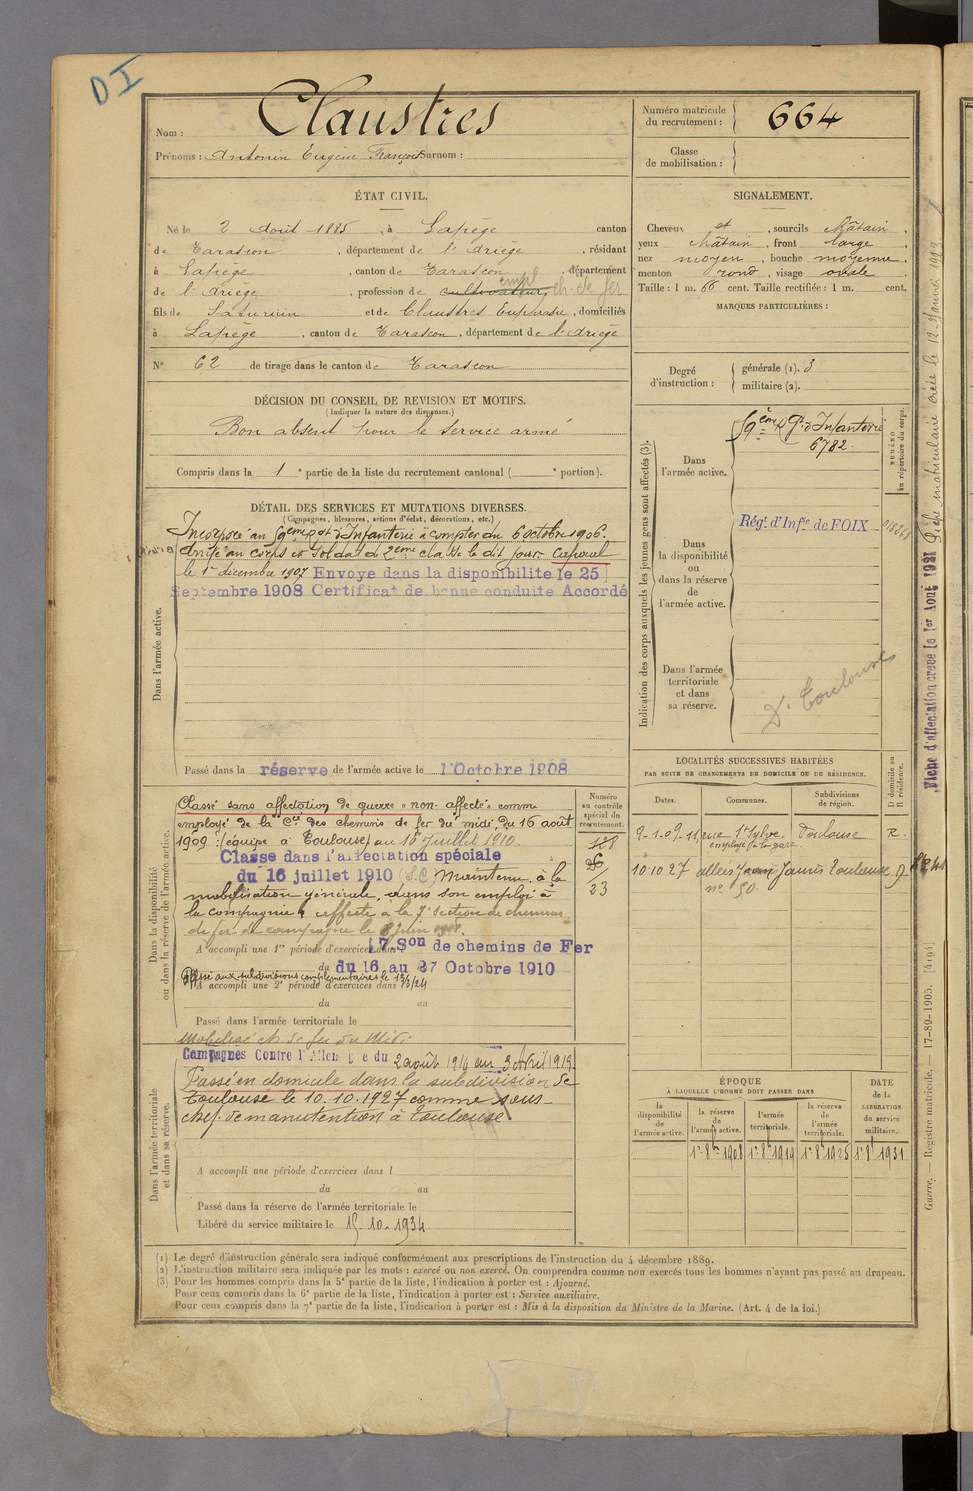 DI
Nom : Claustres
Prénoms : Antonin Eugène François Surnom :
Numéro matricule du recrutement : 664
Classe de mobilisation :
ÉTAT CIVIL.
Né le 2 Août 1885, à Lapège canton
de Tarascon, département de l'Ariège, résidant
à Lapège, canton de Tarascon, département
de l'Ariège, profession de cultivateur, empl. ch. de fer
fils de Saturnin et de Claustres Euphrasie, domiciliés
à Lapège, canton de Tarascon, département de l'Ariège
N° 62 de tirage dans le canton de Tarascon
SIGNALEMENT.
Cheveux et, sourcils châtain,
yeux châtain, front large,
nez moyen, bouche moyenne,
menton rond, visage ovale
Taille : 1 m. 66 cent. Taille rectifiée : 1 m. cent.
MARQUES PARTICULIÈRES :
Degré d'instruction :
générale (1). 3
militaire (2).
DÉCISION DU CONSEIL DE REVISION ET MOTIFS.
(Indiquer la nature des dispenses.)
Bon absent pour le service armé
Compris dans la 1e partie de la liste du recrutement cantonal ( e portion).
DÉTAIL DES SERVICES ET MUTATIONS DIVERSES.
(Campagnes, blessures, actions d'éclat, décorations, etc.)
Dans l'armée active.
Incorporé au 59ème Rgt d'Infanterie à compter du 6 octobre 1906.
Arrivé au corps et soldat de 2ème classe le dit jour. Caporal
le 1er décembre 1907 Envoyé dans la disponibilite le 25
Septembre 1908 Certificat de bonne conduite Accordé
Passé dans la réserve de l'armée active le 1 Octobre 1908
Indication des corps auxquels les jeunes gens sont affectés (3).
NUMÉRO au répertoire du corps.
Dans l'armée active.
59ème Rt d'Infanterie
6782
Dans la disponibilité ou dans la réserve de l'armée active.
Régt d'Infie de FOIX
Dans l'armée territoriale et dans sa réserve.
Dt Toulouse
Fiche matriculaire créée le 12 Janvier 1923
Fiche d'affectation creee le 1er Aout 1931
Dans la disponibilité ou dans la réserve de l'armée active.
Numéro au contrôle spécial du recrutement.
Classé sans affectation de guerre "non-affecté" comme
employé de la Cie des chemins de fer du midi, du 16 août
1909 : (équipe à Toulouse) au 16 Juillet 1910.
Classe dans l'affectation spéciale
du 16 juillet 1910 (S.C.) Maintenu à la
mobilisation générale, dans son emploi à
la compagnie affecté à la 7e section de chemins
de fer de campagne le
23
A accompli une 1re période d'exercices dans 7 Son de chemins de Fer
du 16 au 27 Octobre 1910
Passé aux subdivisions complémentaires le
A accompli une 2e période d'exercices dans
du au
Passé dans l'armée territoriale le
Mobilisé ch. de fer du Midi
Dans l'armée territoriale et dans sa réserve.
Campagnes Contre l'Allemagne du 2 août 1914 au 3 Avril 1919.
Passé en domicile dans la subdivision de
Toulouse le 10.10.1927 comme sous-
chef de manutention à Toulouse
A accompli une période d'exercices dans l
du au
Passé dans la réserve de l'armée territoriale le
Libéré du service militaire le 15-10-1934
LOCALITÉS SUCCESSIVES HABITÉES
PAR SUITE DE CHANGEMENTS DE DOMICILE OU DE RÉSIDENCE.
D domicile ou R résidence.
Dates. Communes. Subdivisions de région.
9-1-09 11, rue St Sylve. Toulouse R.
employé à la gare
10 10 27 allées Jean Jaurès Toulouse D
n° 50.
ÉPOQUE
À LAQUELLE L'HOMME DOIT PASSER DANS
DATE de la LIBÉRATION du service militaire.
la disponibilité de l'armée active. la réserve de l'armée active. l'armée territoriale. la réserve de l'armée territoriale.
1er 8bre 1908 1er 8bre 1919 1er 8bre 1925 1er 8bre 1931
Guerre. — Registre matricule. — 17-89-1905. [4194]
(1) Le degré d'instruction générale sera indiqué conformément aux prescriptions de l'instruction du 4 décembre 1889.
(2) L'instruction militaire sera indiquée par les mots : exercé ou non exercé. On comprendra comme non exercés tous les hommes n'ayant pas passé au drapeau.
(3) Pour les hommes compris dans la 5e partie de la liste, l'indication à porter est : Ajourné.
Pour ceux compris dans la 6e partie de la liste, l'indication à porter est : Service auxiliaire.
Pour ceux compris dans la 7e partie de la liste, l'indication à porter est : Mis à la disposition du Ministre de la Marine. (Art. 4 de la loi.)